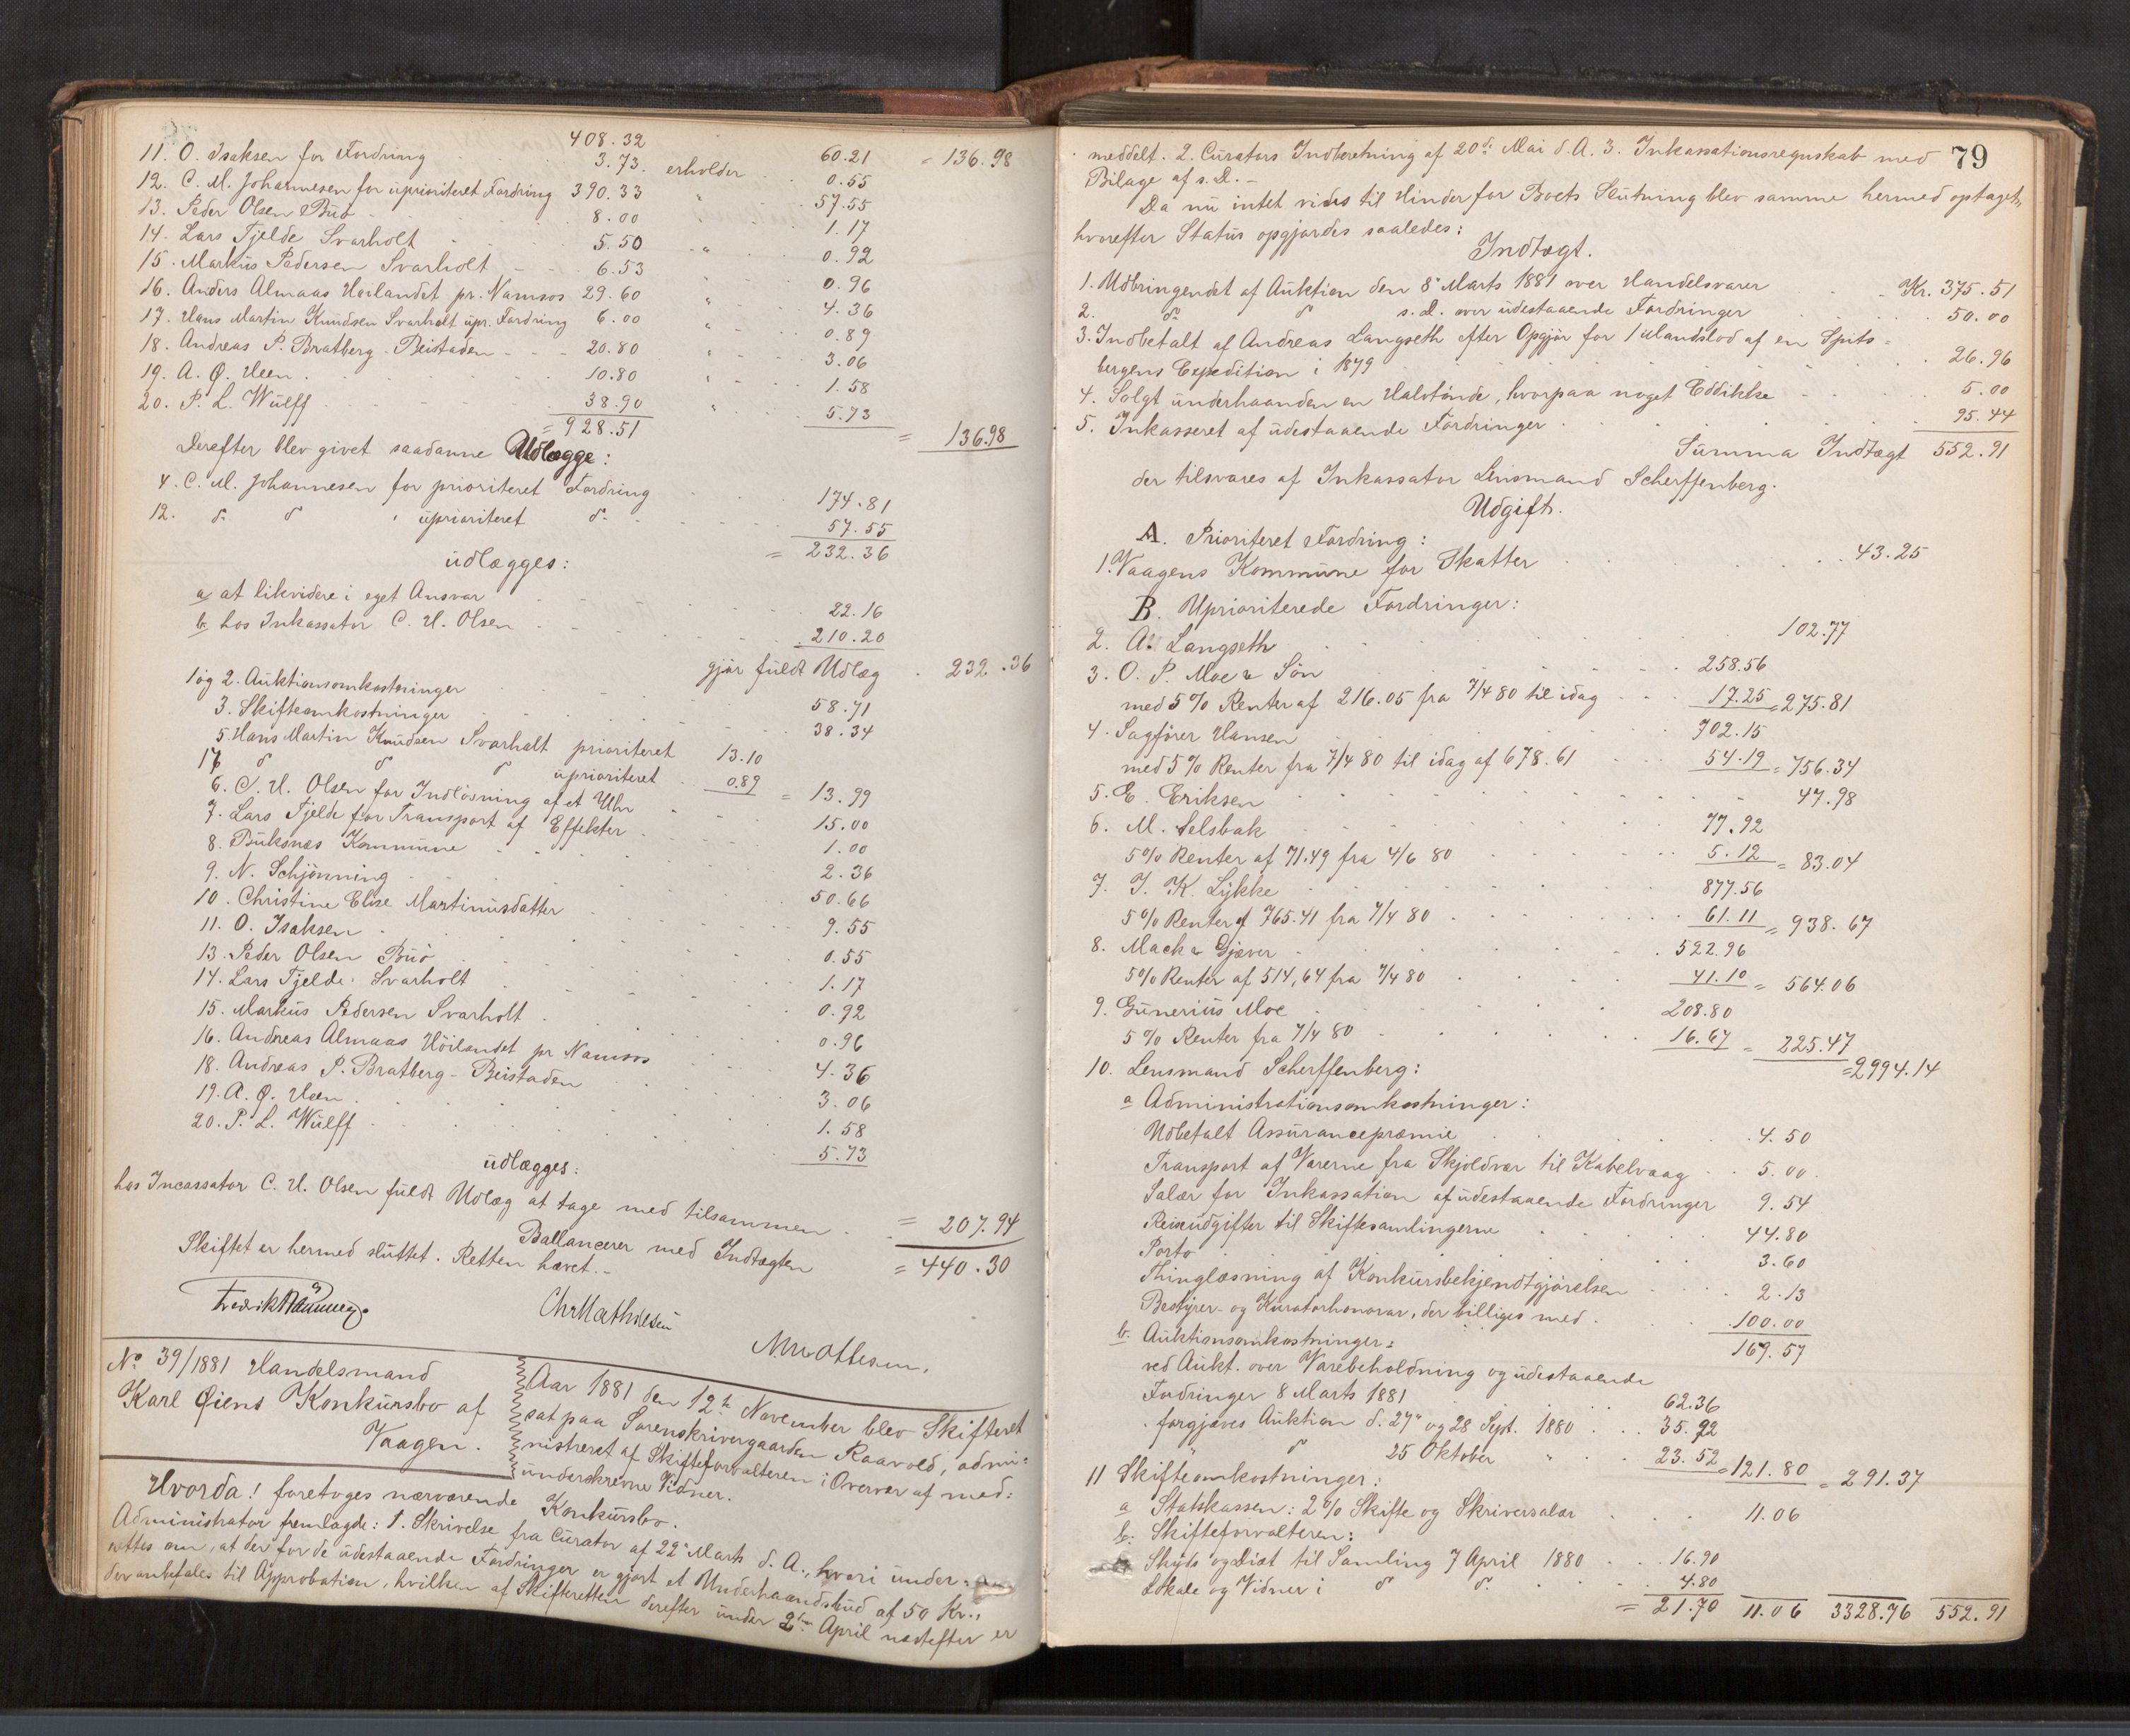 408.32 60.21 = 136.98
11. O. Isaksen for Fordring 3.73 erholder 0.55
12. C. M. Johannesen for uprioriteret Fordring 390.33 " 57.55
13. Peder Olsen Buö 8.00 " 1.17
14. Lars Fjelde Svarholt 5.50 " 0.92
15. Markus Pedersen Svarholt 6.53 " 0.96
16. Anders Almaas Höilandet pr. Namsos 29.60 " 4.36
17. Hans Martin Knudsen Svarholt upr. Fordring 6.00 " 0.89
18. Andreas P. Bratberg - Beistaden 20.80 " 3.06
19. A. Q. Veen 10.80 " 1.58
20. P. L. Wulff 38.90 " 5.73
= 928.51 = 136.98
Derefter blev givet saadanne Udlægge:
4. C. M. Johannesen for prioriteret Fordring 174.81
12. do do " uprioriteret do 57.55
= 232.36
udlægges:
a at likvidere i eget Ansvar 22.16
b. hos Inkassator C. U. Olsen 210.20
gjør fuldt Udlæg 232.36
1 og 2. Auktionsomkostninger 58.71
3. Skifteomkostninger 38.34
5. Hans Martin Knudsen Svarholt prioriteret 13.10
17 do do do uprioriteret 0.89 = 13.99
6. C. U. Olsen for Indløsning af et Uhr 15.00
7. Lars Fjelde for Transport af Effekter 1.00
8. Buksnæs Kommune 2.36
9. N. Schjönning 50.66
10. Christine Elise Martinusdatter 9.55
11. O. Isaksen 0.55
13. Peder Olsen Buö 1.17
14. Lars Fjelde Svarholt 0.92
15. Markus Pedersen Svarholt 0.96
16. Andreas Almaas Höilandet pr Namsos 4.36
18. Andreas P. Bratberg - Beistaden 3.06
19. A. Q. Veen 1.58
20. P. L. Wulff 5.73
udlægges:
hos Incassator C. U. Olsen fuldt Udlæg at tage med tilsammen = 207.94
Ballancerer med Indtægten = 440.30
Skiftet er hermed sluttet. Retten hævet.-
Chr Mathiesen
No 39/1881 Handelsmand
Karl Øiens Konkursbo af
Vaagen.
Aar 1881 den 12te November blev Skifteret
sat paa Sorenskrivergaarden Raavold, admi=
nistreret af Skifteforvalteren i Overvær af med=
underskrevne Vidner.
Hvorda! foretoges nærværende Konkursbo.
Administrator fremlagde: 1. Skrivelse fra Curator af 22de Marts d. A., hvori under=
rettes om, at der for de udestaaende Fordringer er gjort et Underhaandsbud af 50 Kr.,
der anbefales til Approbation, hvilken af Skifteretten derefter under 2den April næstefter er
79
meddelt. 2. Curators Indberetning af 20de Mai d. A. 3. Inkassationsregnskab med
Bilage af s. D. -
Da nu intet vides til Hinder for Boets Slutning blev samme hermed optaget,
hvorefter Status opgjordes saaledes:
Indtægt.
1. Udbringendet af Auktion den 8de Marts 1881 over Handelsvarer Kr. 375.51
2. do do s. D. over udestaaende Fordringer 50.00
3. Indbetalt af Andreas Langseth efter Opgjør for 1 Mandslod af en Spits=
bergens Expedition i 1879 26.96
4. Solgt underhaanden en Halvtønde, hvorpaa noget Eddikke 5.00
5. Inkasseret af udestaaende Fordringer 95.44
Summa Indtægt 552.91
der tilsvares af Inkassator Lensmand Scherffenberg.
Udgift.
A. Prioriteret Fordring:
1. Vaagens Kommune for Skatter 43.25
B. Uprioriterede Fordringer:
2. A. Langseth 102.77
3. O. P. Moe & Sön 258.56
med 5% Renter af 216.05 fra 7/4 80 til idag 17.25 = 275.81
4. Sagfører Hansen 702.15
med 5% Renter fra 7/4 80 til idag af 678.61 54.19 = 756.34
5. E. Eriksen 47.98
6. M. Selsbak 77.92
5% Renter af 71.49 fra 4/6 80 5.12 = 83.04
7. I. K. Lykke 877.56
5% Renter af 765.41 fra 7/4 80 61.11 = 938.67
8. Mack & Gjæver 522.96
5% Renter af 514,64 fra 7/4 80 41.10 = 564.06
9. Gunerius Moe 208.80
5% Renter fra 7/4 80 16.67 = 225.47
= 2994.14
10. Lensmand Scherffenberg:
a Administrationsomkostninger:
Udbetalt Assurancepræmie 4.50
Transport af Varerne fra Skjoldvær til Kabelvaag 5.00
Salær for Inkassation af udestaaende Fordringer 9.54
Reiseudgifter til Skiftesamlingerne 44.80
Porto 3.60
Thinglæsning af Konkursbekjendtgjørelsen 2.13
Bestyrer- og Kuratorhonorar, der billiges med 100.00
169.57
b. Auktionsomkostninger:
ved Aukt. over Varebeholdning og udestaaende
Fordringer 8 Marts 1881 62.36
" forgjæves Auktion d. 27de og 28 Sept. 1880 35.92
" do 25 Oktober " 23.52 = 121.80 = 291.37
11 Skifteomkostninger:
a Statskassen: 2% Skifte og Skriversalær 11.06
b. Skifteforvalteren:
Skyds og Diæt til Samling 7 April 1880 16.90
Lokale og Vidner i do do 4.80
= 21.70 11.06 3328.76 552.91